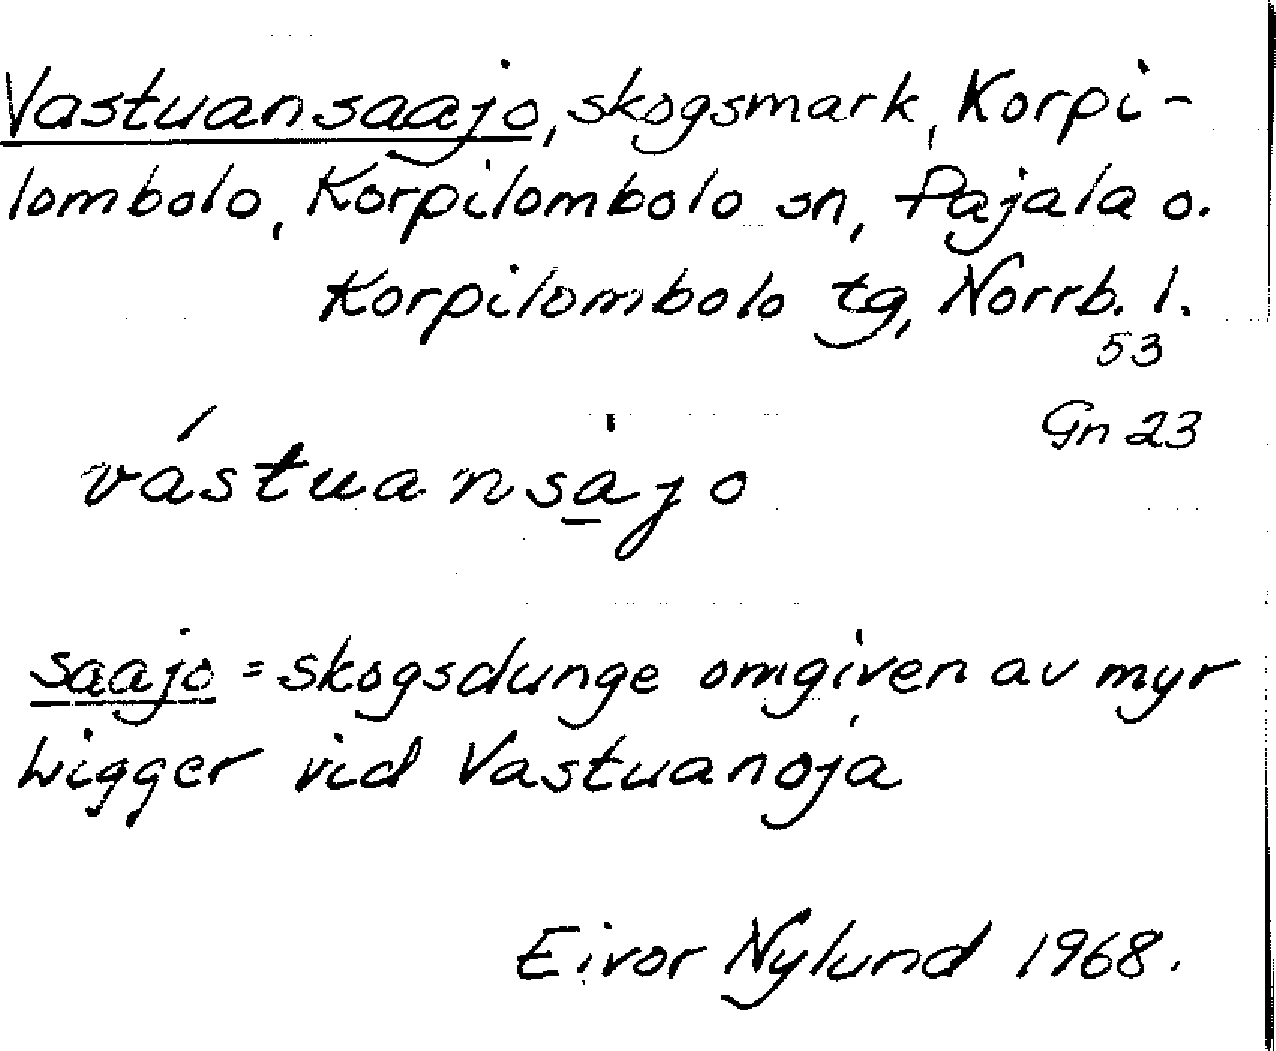 Vastuansaajo, skogsmark, Korpi-
lombolo, Korpilombolo sn, Pajala o.
Korpilombolo tg, Norrb. l.
53
Gn 23
vástuansa̱̍jo
saajo = skogsdunge omgiven av myr
Ligger vid Vastuanoja
Eivor Nylund 1968.